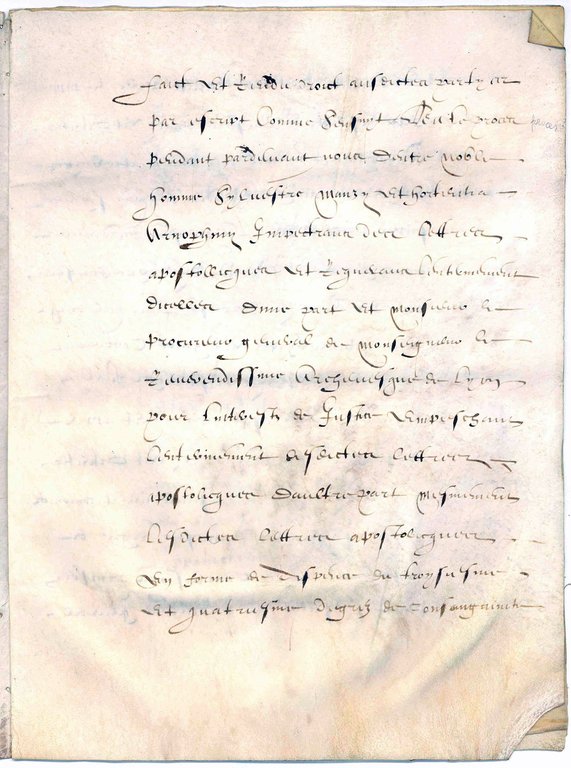 faict et Rendu droict ausdictes partyes
par escript Comme sensuyt Veu le proces
pendant pardevant nous Dentre noble
homme Sylvestre Manzy et hortentia
Arnophiny Impectrans dece lettres
apostollicques et Requerans lenterinement
dicelles dune part et monsieur le
procureur general de monseigneur le
Reverendissime Archevesque de Lyon
pour linterest de Justice Empeschant
lenterinement desdictes lettres
apostolicques daultre part mesmement
lesdictes lettres apostolicques
En forme de dispence du troysiesme
et quatriesme degrez de consanguinite